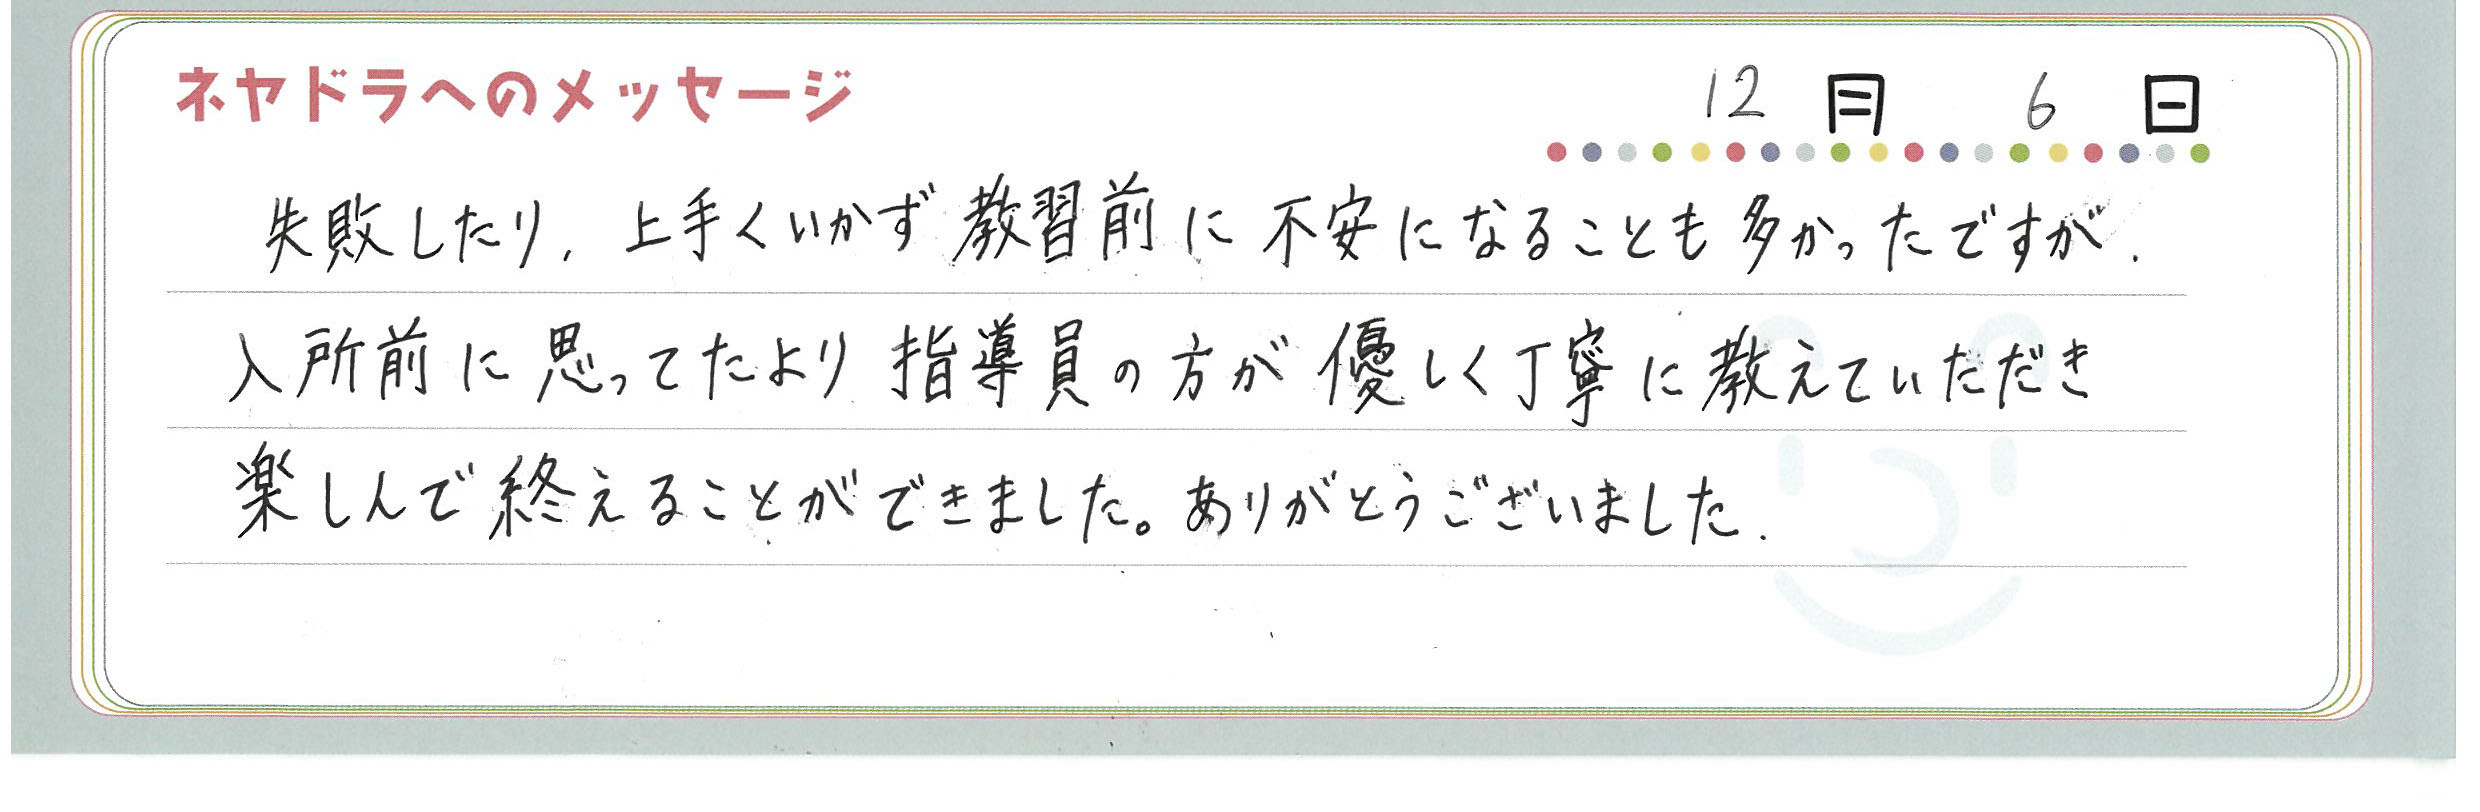 ネヤドラへのメッセージ 12月 6日
失敗したり、上手くいかず教習前に不安になることも多かったですが、
入所前に思ってたより指導員の方が優しく丁寧に教えていただき
楽しんで終えることができました。ありがとうございました.